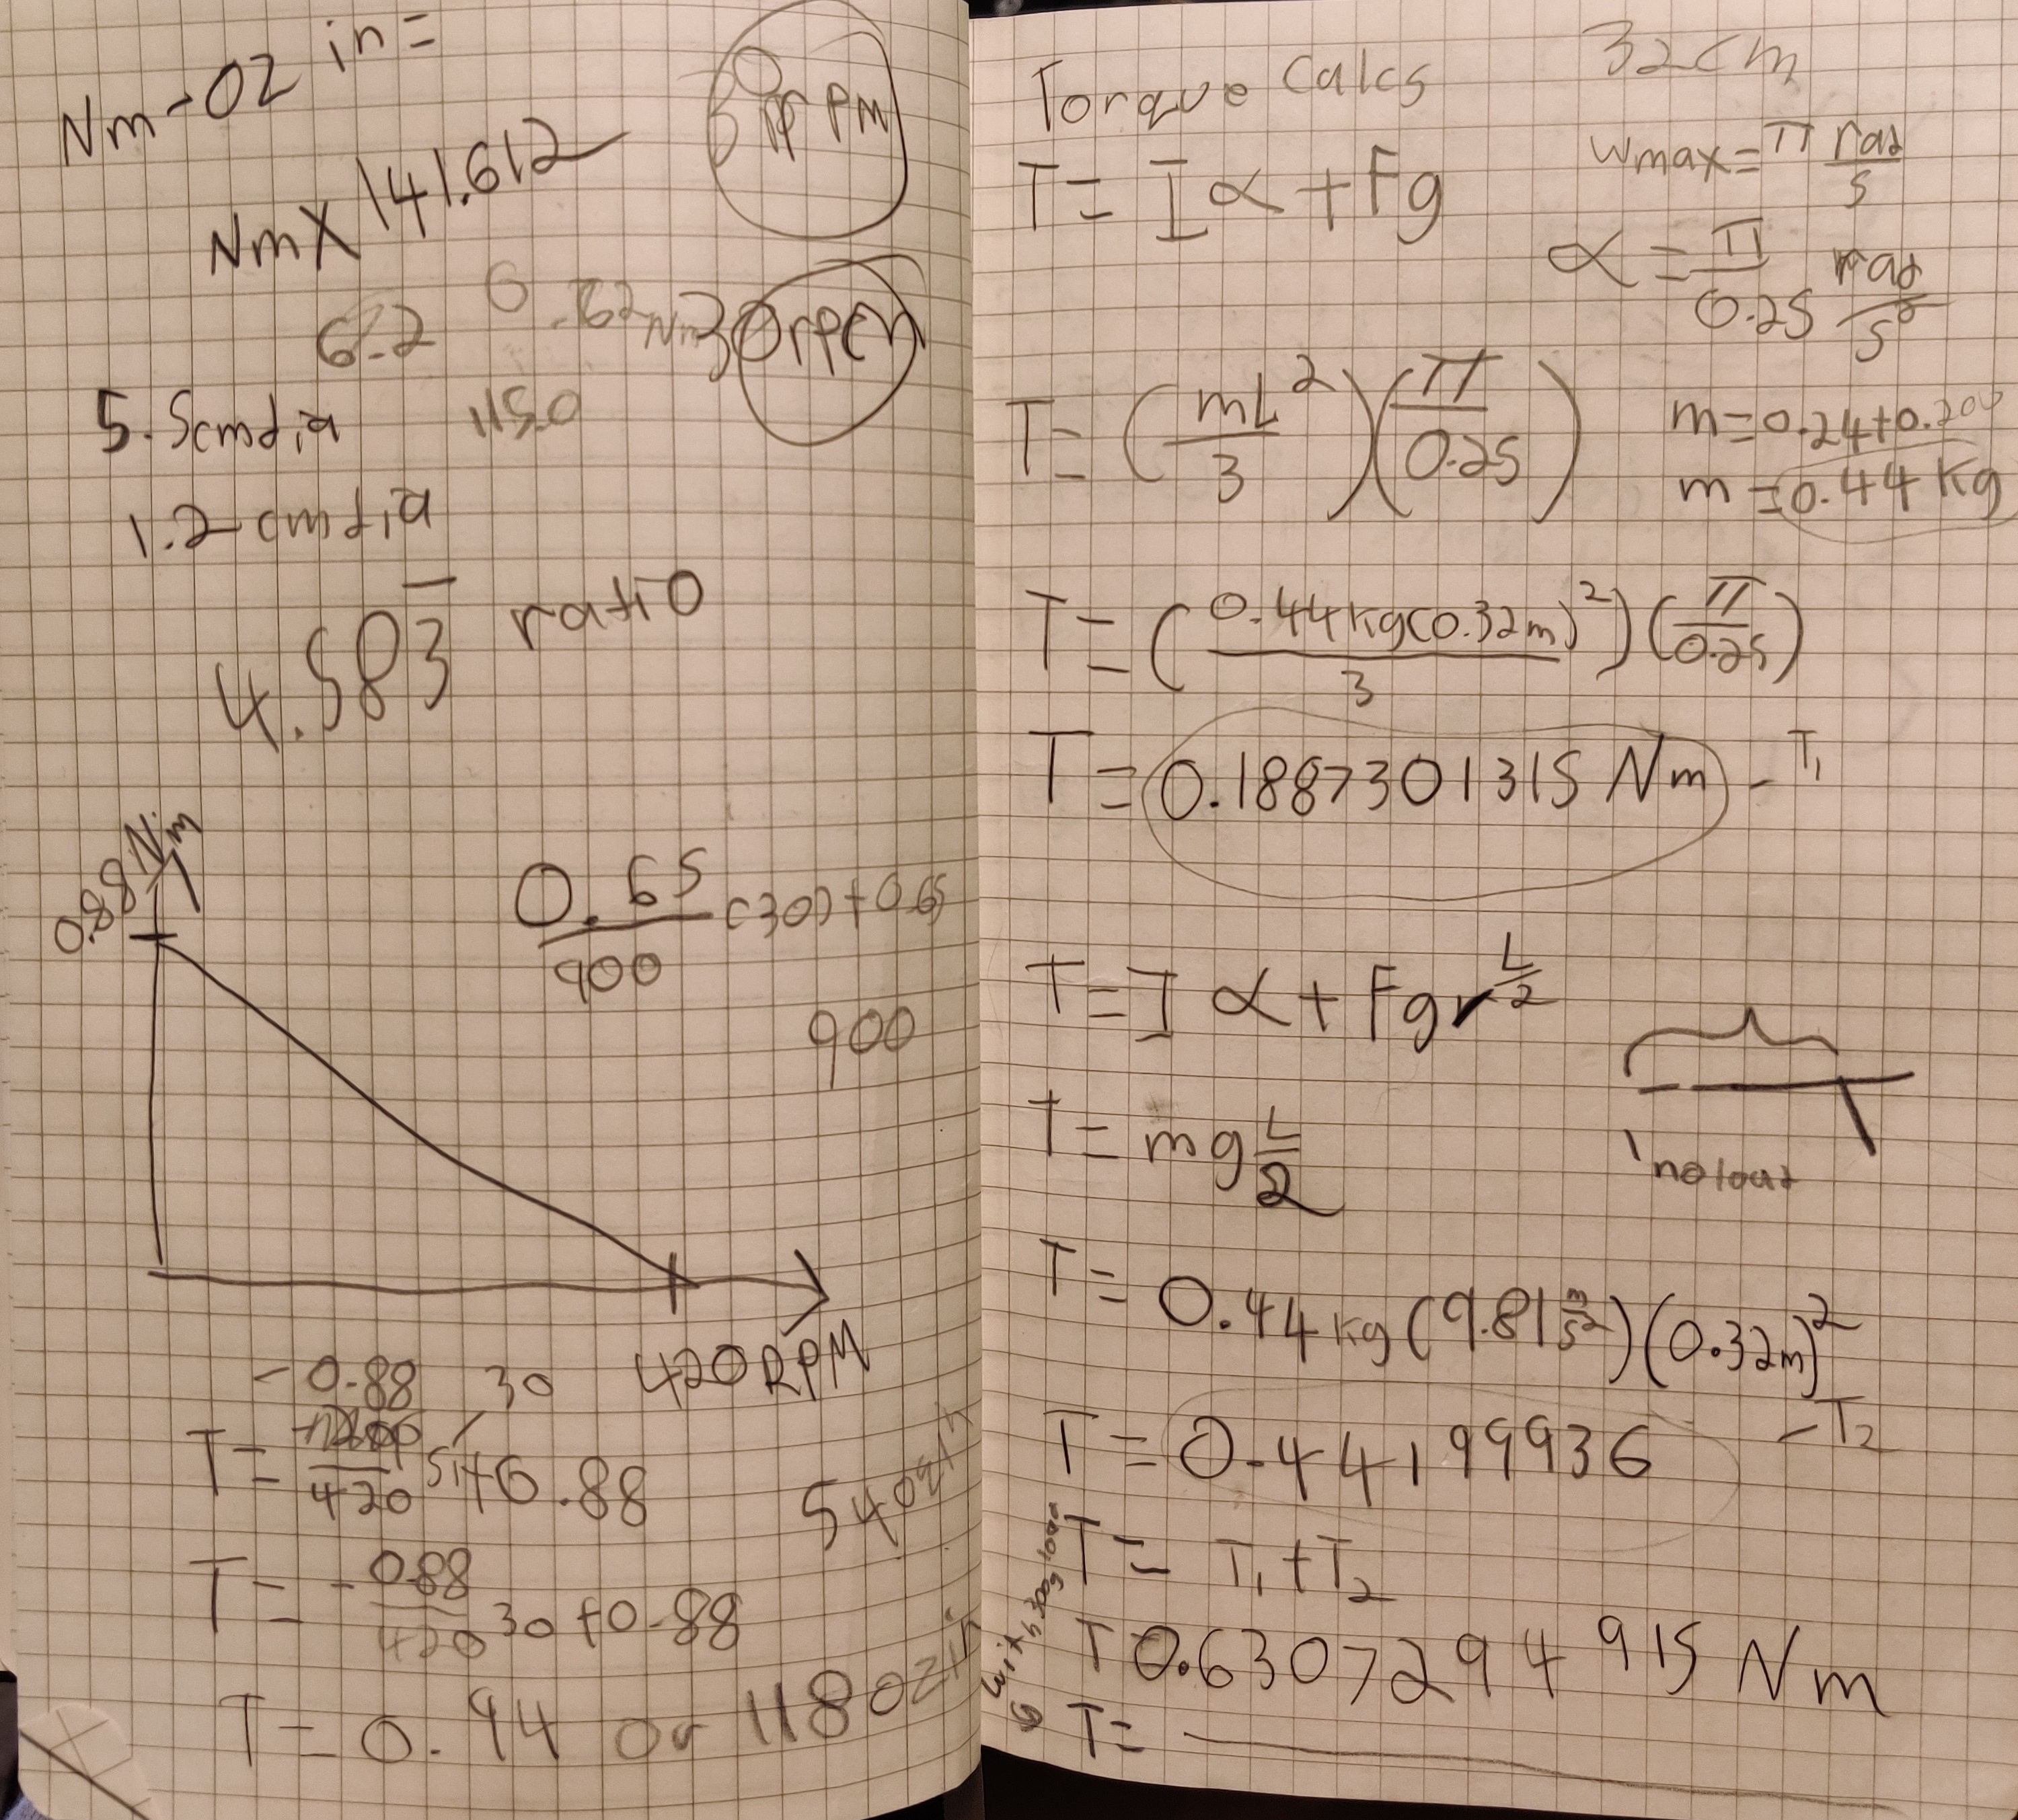 Nm-OZ in =
Nm X 141.612
30 rpm
6.2
.62 Nm 30 rpm
5.5cm dia
1150
1.2 cm dia
4.583̅ ratio
0.88 Nm
0.65/900 (30) + 0.65
900
420 RPM
-0.88 30
T = /420 + 0.88
540ozin
T = -0.88/420 30 + 0.88
T = 0.94 or 118ozin
Torque Calcs
32cm
T = Iα + Fg
wmax = π rad/s
α = π/0.25 rad/s²
T = (mL²/3)(π/0.25)
m = 0.24+0.200
m = 0.44 Kg
T = (0.44kg(0.32m)²/3)(π/0.25)
T = 0.1887301315 Nm - T₁
T = I α + Fgr L/2
T = mg L/2
no load
T = 0.44 kg (9.81 m/s²)(0.32m)²
T = 0.44199936 - T₂
T = T₁ + T₂
T 0.6307294915 Nm
T =